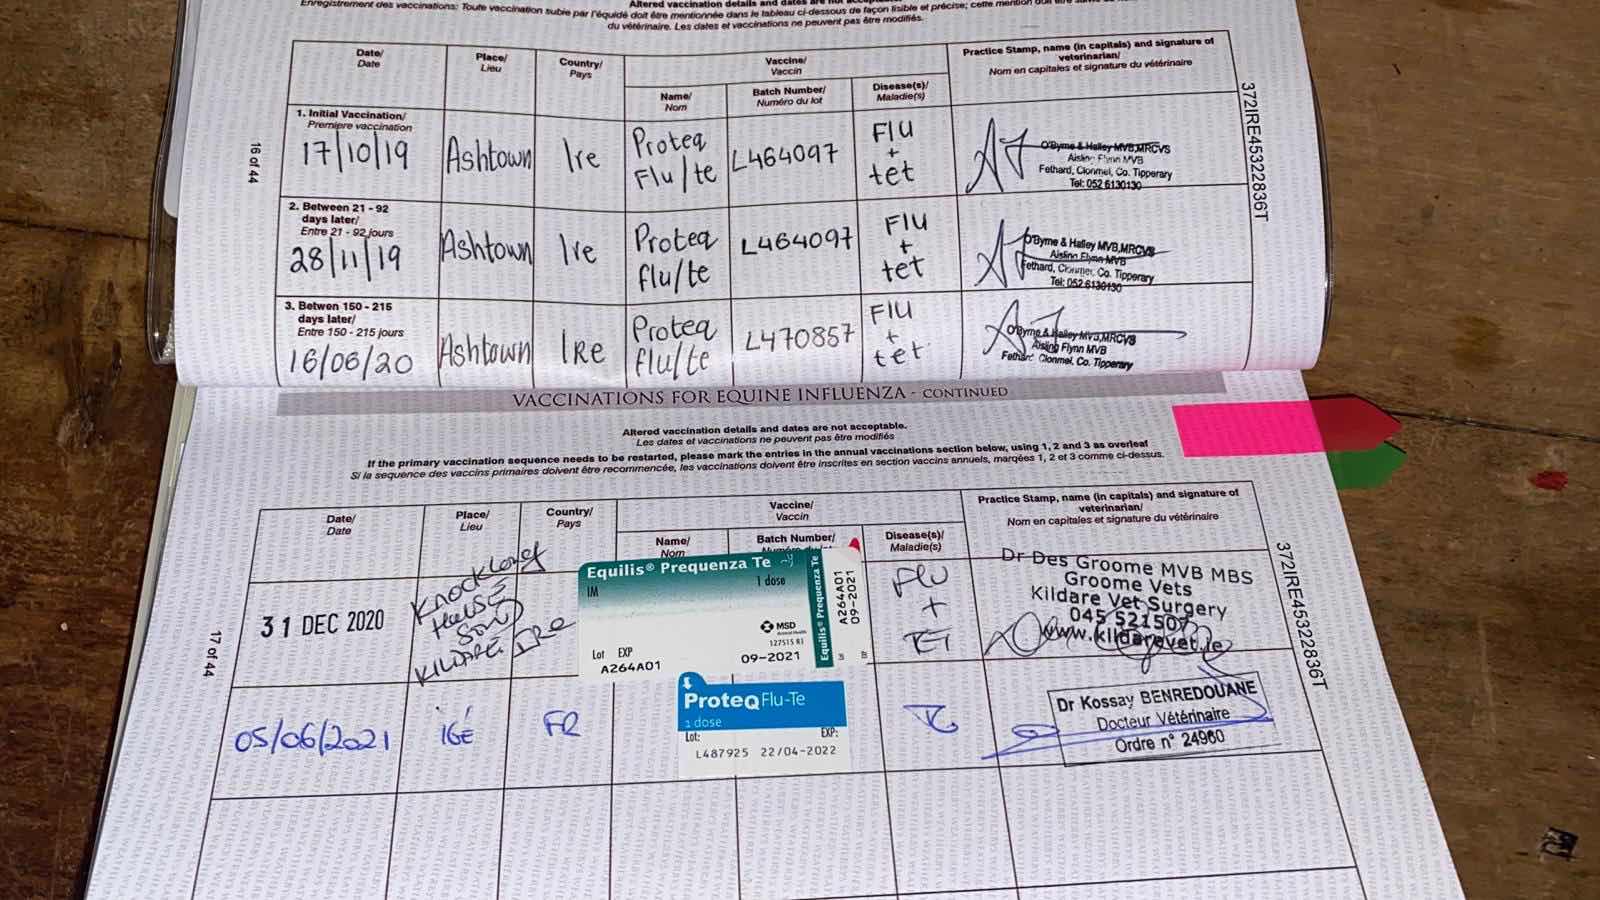 Altered vaccination details and dates are not acceptable.
Enregistrement des vaccinations: Toute vaccination subie par l'équidé doit être mentionnée dans le tableau ci-dessous de façon lisible et précise; cette mention doit être
du vétérinaire. Les dates et vaccinations ne peuvent pas être modifiés.
Date/
Date
Place/
Lieu
Country/
Pays
Vaccine/
Vaccin
Name/
Nom
Batch Number/
Numéro du lot
Disease(s)/
Maladie(s)
Practice Stamp, name (in capitals) and signature of
veterinarian/
Nom en capitales et signature du vétérinaire
1. Initial Vaccination/
Premiere vaccination
17/10/19
Ashtown
Ire
Proteq
Flu/te
L464097
Flu
+
tet
O'Byrne & Halley MVB,MRCVS
Aisling Flynn MVB
Fethard, Clonmel, Co. Tipperary
Tel: 052 6130130
2. Between 21 - 92
days later/
Entre 21 - 92 jours
28/11/19
Ashtown
Ire
Proteq
flu/te
L464097
Flu
+
tet
O'Byrne & Halley MVB,MRCVS
Aisling Flynn MVB
Fethard, Clonmel, Co. Tipperary
Tel: 052 6130130
3. Betwen 150 - 215
days later/
Entre 150 - 215 jours
16/06/20
Ashtown
IRe
Proteq
flu/te
L470857
Flu
+
tet
O'Byrne & Halley MVB,MRCVS
Aisling Flynn MVB
Fethard, Clonmel, Co. Tipperary
16 of 44
372IRE45322836T
VACCINATIONS FOR EQUINE INFLUENZA - CONTINUED
Altered vaccination details and dates are not acceptable.
Les dates et vaccinations ne peuvent pas être modifiés
If the primary vaccination sequence needs to be restarted, please mark the entries in the annual vaccinations section below, using 1, 2 and 3 as overleaf
Si la sequence des vaccins primaires doivent être recommencée, les vaccinations doivent être inscrites en section vaccins annuels, marqées 1, 2 et 3 comme ci-dessus.
Date/
Date
Place/
Lieu
Country/
Pays
Vaccine/
Vaccin
Name/
Nom
Batch Number/
Numéro du lot
Disease(s)/
Maladie(s)
Practice Stamp, name (in capitals) and signature of
veterinarian/
Nom en capitales et signature du vétérinaire
31 DEC 2020
HOUSE
STUD
KILDARE
IRE
Equilis® Prequenza Te
1 dose
IM
MSD
Animal Health
127515 R1
Lot EXP
A264A01 09-2021
Equilis® Prequenza Te
A264A01
09-2021
Flu
+
TET
Dr Des Groome MVB MBS
Groome Vets
Kildare Vet Surgery
045 521507
www.kildarevet.ie
05/06/2021
IGÉ
FR
ProteqFlu-Te
1 dose
Lot: EXP:
L487925 22/04-2022
Dr Kossay BENREDOUANE
Docteur Vétérinaire
Ordre n° 24960
17 of 44
372IRE45322836T